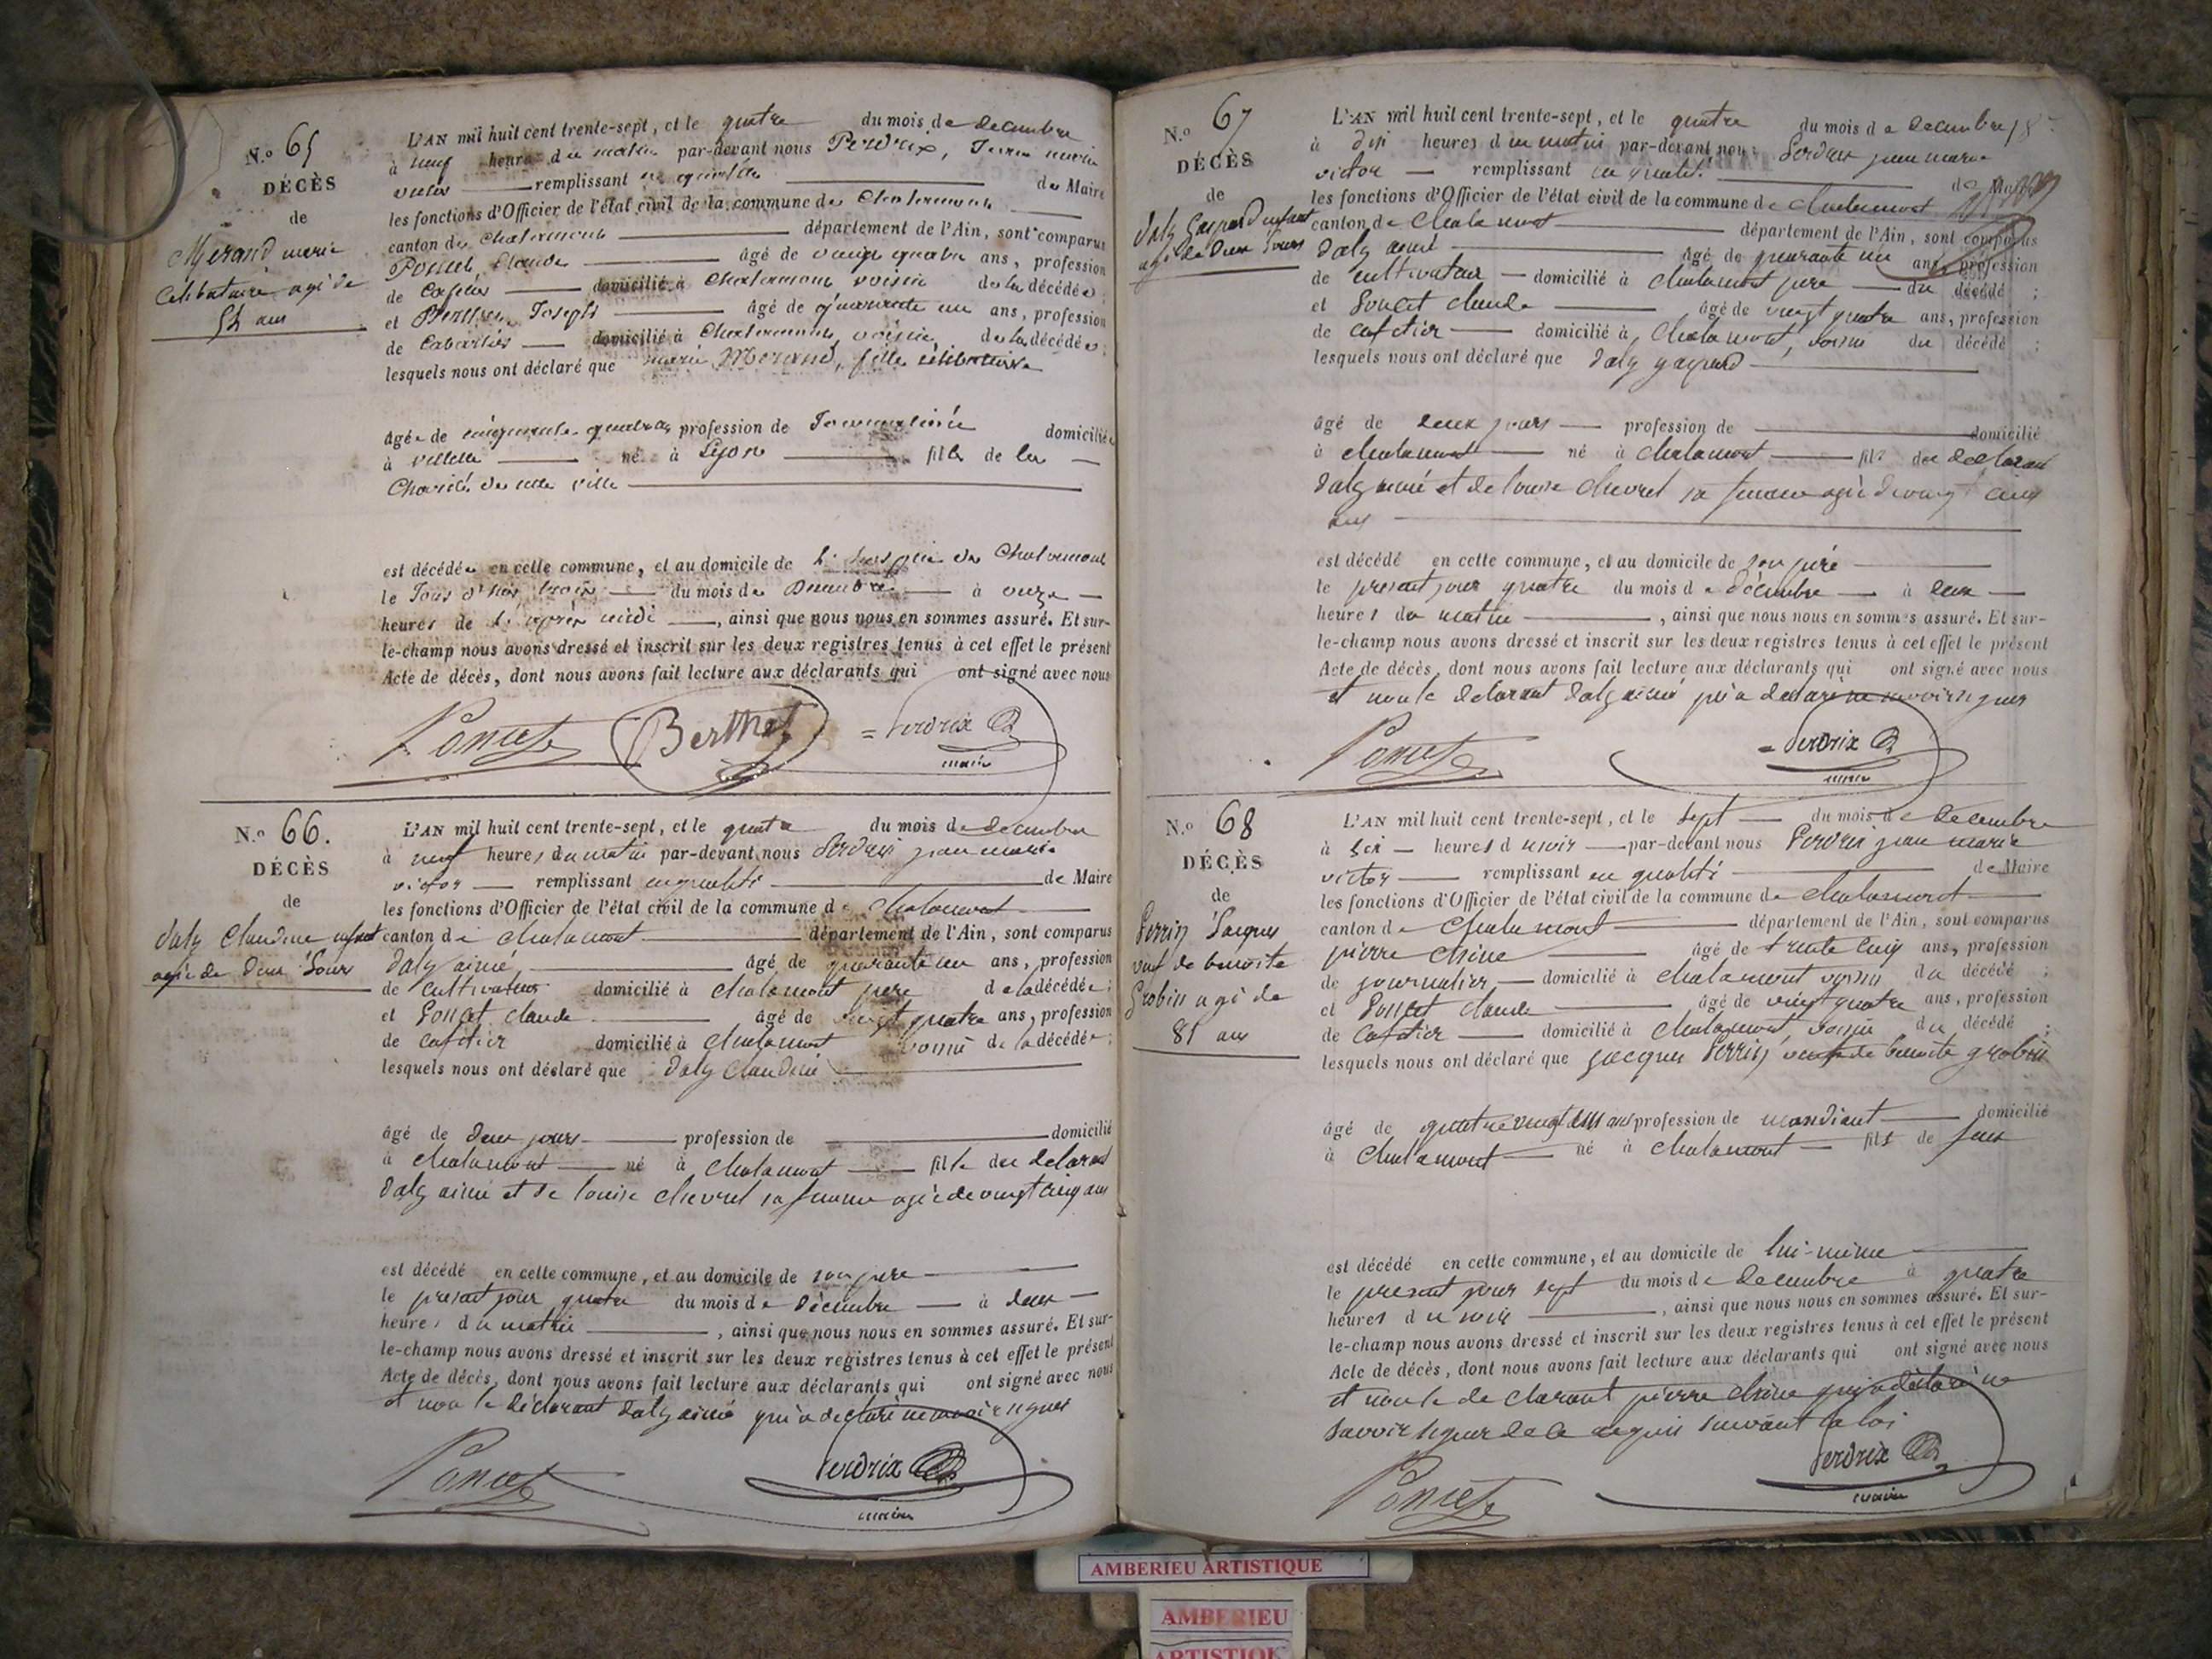 N.º 65
DÉCÈS
de
Merand marie
Celibataire agé de
54 ans
L'AN mil huit cent trente-sept, et le quatre du mois de decembre
à neuf heures du matin par-devant nous Perdrix, Jean marie
victor remplissant en qualité de Maire
les fonctions d'Officier de l'état civil de la commune de Chalamont
canton de Chalamont département de l'Ain, sont comparus
Poncet, Claude âgé de vingt quatre ans, profession
de Cafetier domicilié à Chalamont voisin de la décédée
et Joseph âgé de quarante un ans, profession
de Cabartier domicilié à Chalamont, voisin, de la décédée
lesquels nous ont déclaré que marie Merand, fille célibataire
âgée de cinquante quatre ans profession de Journalière domiciliée
à Villette né à Lyon fille de la
Charité de cette ville
est décédée en cette commune, et au domicile de L'hospice de Chalamont
le Jour d'hier trois du mois de Decembre à onze
heures de L'après midi, ainsi que nous nous en sommes assuré. Et sur-
le-champ nous avons dressé et inscrit sur les deux registres tenus à cet effet le présent
Acte de décès, dont nous avons fait lecture aux déclarants qui ont signé avec nous
Poncet Berthet Perdrix
maire
N.º 66.
DÉCÈS
de
Daly Claudine enfant
agée de deux Jours
L'AN mil huit cent trente-sept, et le quatre du mois de decembre
à neuf heures du matin par-devant nous Perdrix jean marie
victor remplissant en qualité de Maire
les fonctions d'Officier de l'état civil de la commune de Chalamont
canton de chalamont département de l'Ain, sont comparus
Daly aimé âgé de quarante un ans, profession
de cultivateur domicilié à chalamont pere de la décédée;
et Poncet claude âgé de vingt quatre ans, profession
de cafetier domicilié à chalamont voisin de la décédée;
lesquels nous ont déclaré que Daly Claudine
âgé de deux jours profession de domicilié
à chalamont né à chalamont fille du declarant
Daly aimé et de louise chevrel sa femme agée de vingt cinq ans
est décédé en cette commune, et au domicile de son pere
le present jour quatre du mois de décembre à deux
heures du matin, ainsi que nous nous en sommes assuré. Et sur-
le-champ nous avons dressé et inscrit sur les deux registres tenus à cet effet le présent
Acte de décès, dont nous avons fait lecture aux déclarants qui ont signé avec nous
et non le déclarant Daly aimé qui a declaré ne savoir signer
Poncet Perdrix
maire
N.º 67
DÉCÈS
de
Daly Gaspard enfant
agé de Deux Jours
L'AN mil huit cent trente-sept, et le quatre du mois de decembre
à dix heures du matin par-devant nous Perdrix jean marie
victor remplissant en qualité de Maire
les fonctions d'Officier de l'état civil de la commune de chalamont
canton de chalamont département de l'Ain, sont comparus
Daly aimé âgé de quarante un ans, profession
de cultivateur domicilié à chalamont pere du décédé;
et Poncet claude âgé de vingt quatre ans, profession
de cafetier domicilié à chalamont, voisin du décédé;
lesquels nous ont déclaré que Daly gaspard
âgé de deux jours profession de domicilié
à chalamont né à chalamont fils du declarant
Daly aimé et de louise chevrel sa femme agée de vingt cinq
ans
est décédé en cette commune, et au domicile de son père
le present jour quatre du mois de décembre à deux
heures du matin, ainsi que nous nous en sommes assuré. Et sur-
le-champ nous avons dressé et inscrit sur les deux registres tenus à cet effet le présent
Acte de décès, dont nous avons fait lecture aux déclarants qui ont signé avec nous
et non le declarant Daly aimé qui a declaré ne savoir signer
Poncet Perdrix
maire
N.º 68
DÉCÈS
de
Perrin Jacques
veuf de benoite
Grobin agé de
81 ans
L'AN mil huit cent trente-sept, et le sept du mois de decembre
à six heures du soir par-devant nous Perdrix jean marie
victor remplissant en qualité de Maire
les fonctions d'Officier de l'état civil de la commune de chalamont
canton de chalamont département de l'Ain, sont comparus
pierre chêne âgé de trente cinq ans, profession
de journalier domicilié à chalamont voisin du décédé;
et Poncet claude âgé de vingt quatre ans, profession
de cafetier domicilié à chalamont, voisin du décédé;
lesquels nous ont déclaré que jacques Perrin veuf de benoite grobin
âgé de quatre vingt un ans profession de mandiant domicilié
à chalamont né à chalamont fils de feus
est décédé en cette commune, et au domicile de lui-même
le present jour sept du mois de decembre à quatre
heures du soir, ainsi que nous nous en sommes assuré. Et sur-
le-champ nous avons dressé et inscrit sur les deux registres tenus à cet effet le présent
Acte de décès, dont nous avons fait lecture aux déclarants qui ont signé avec nous
et non le declarant pierre chêne qui a déclaré ne
savoir signer de ce requis suivant la loi
Poncet Perdrix
maire
AMBERIEU ARTISTIQUE
AMBERIEU
ARTISTIQUE